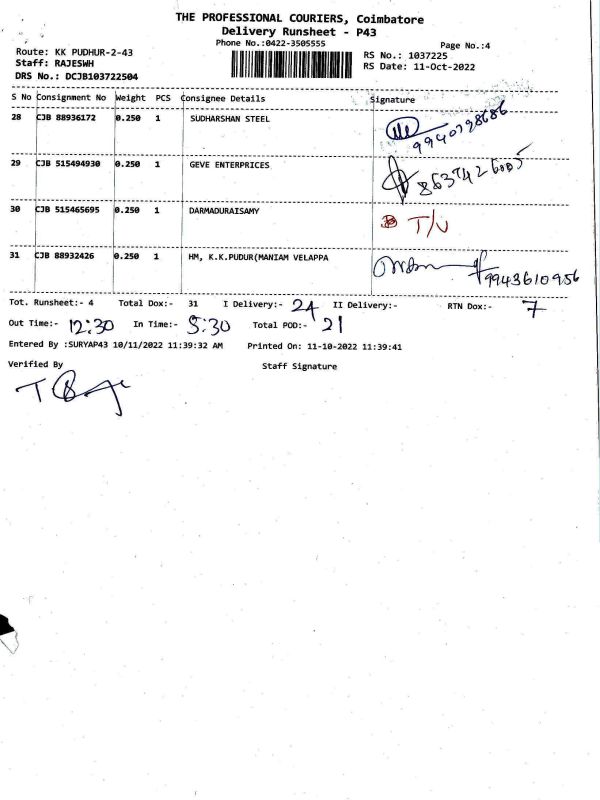 THE PROFESSIONAL COURIERS, Coimbatore
Delivery Runsheet - P43
Phone No.:0422-3505555
Page No.:4
Route: KK PUDHUR-2-43
RS No.: 1037225
Staff: RAJESWH
RS Date: 11-Oct-2022
DRS No.: DCJB103722504
S No Consignment No Weight PCS Consignee Details Signature
28 CJB 88936172 0.250 1 SUDHARSHAN STEEL
29 CJB 515494930 0.250 1 GEVE ENTERPRICES
30 CJB 515465695 0.250 1 DARMADURAISAMY T/U
31 CJB 88932426 0.250 1 HM, K.K.PUDUR(MANIAM VELAPPA 9943610956
Tot. Runsheet:- 4 Total Dox:- 31 I Delivery:- 24 II Delivery:- RTN Dox:- 7
Out Time:- 12:30 In Time:- 5:30 Total POD:- 21
Entered By :SURYAP43 10/11/2022 11:39:32 AM Printed On: 11-10-2022 11:39:41
Verified By Staff Signature